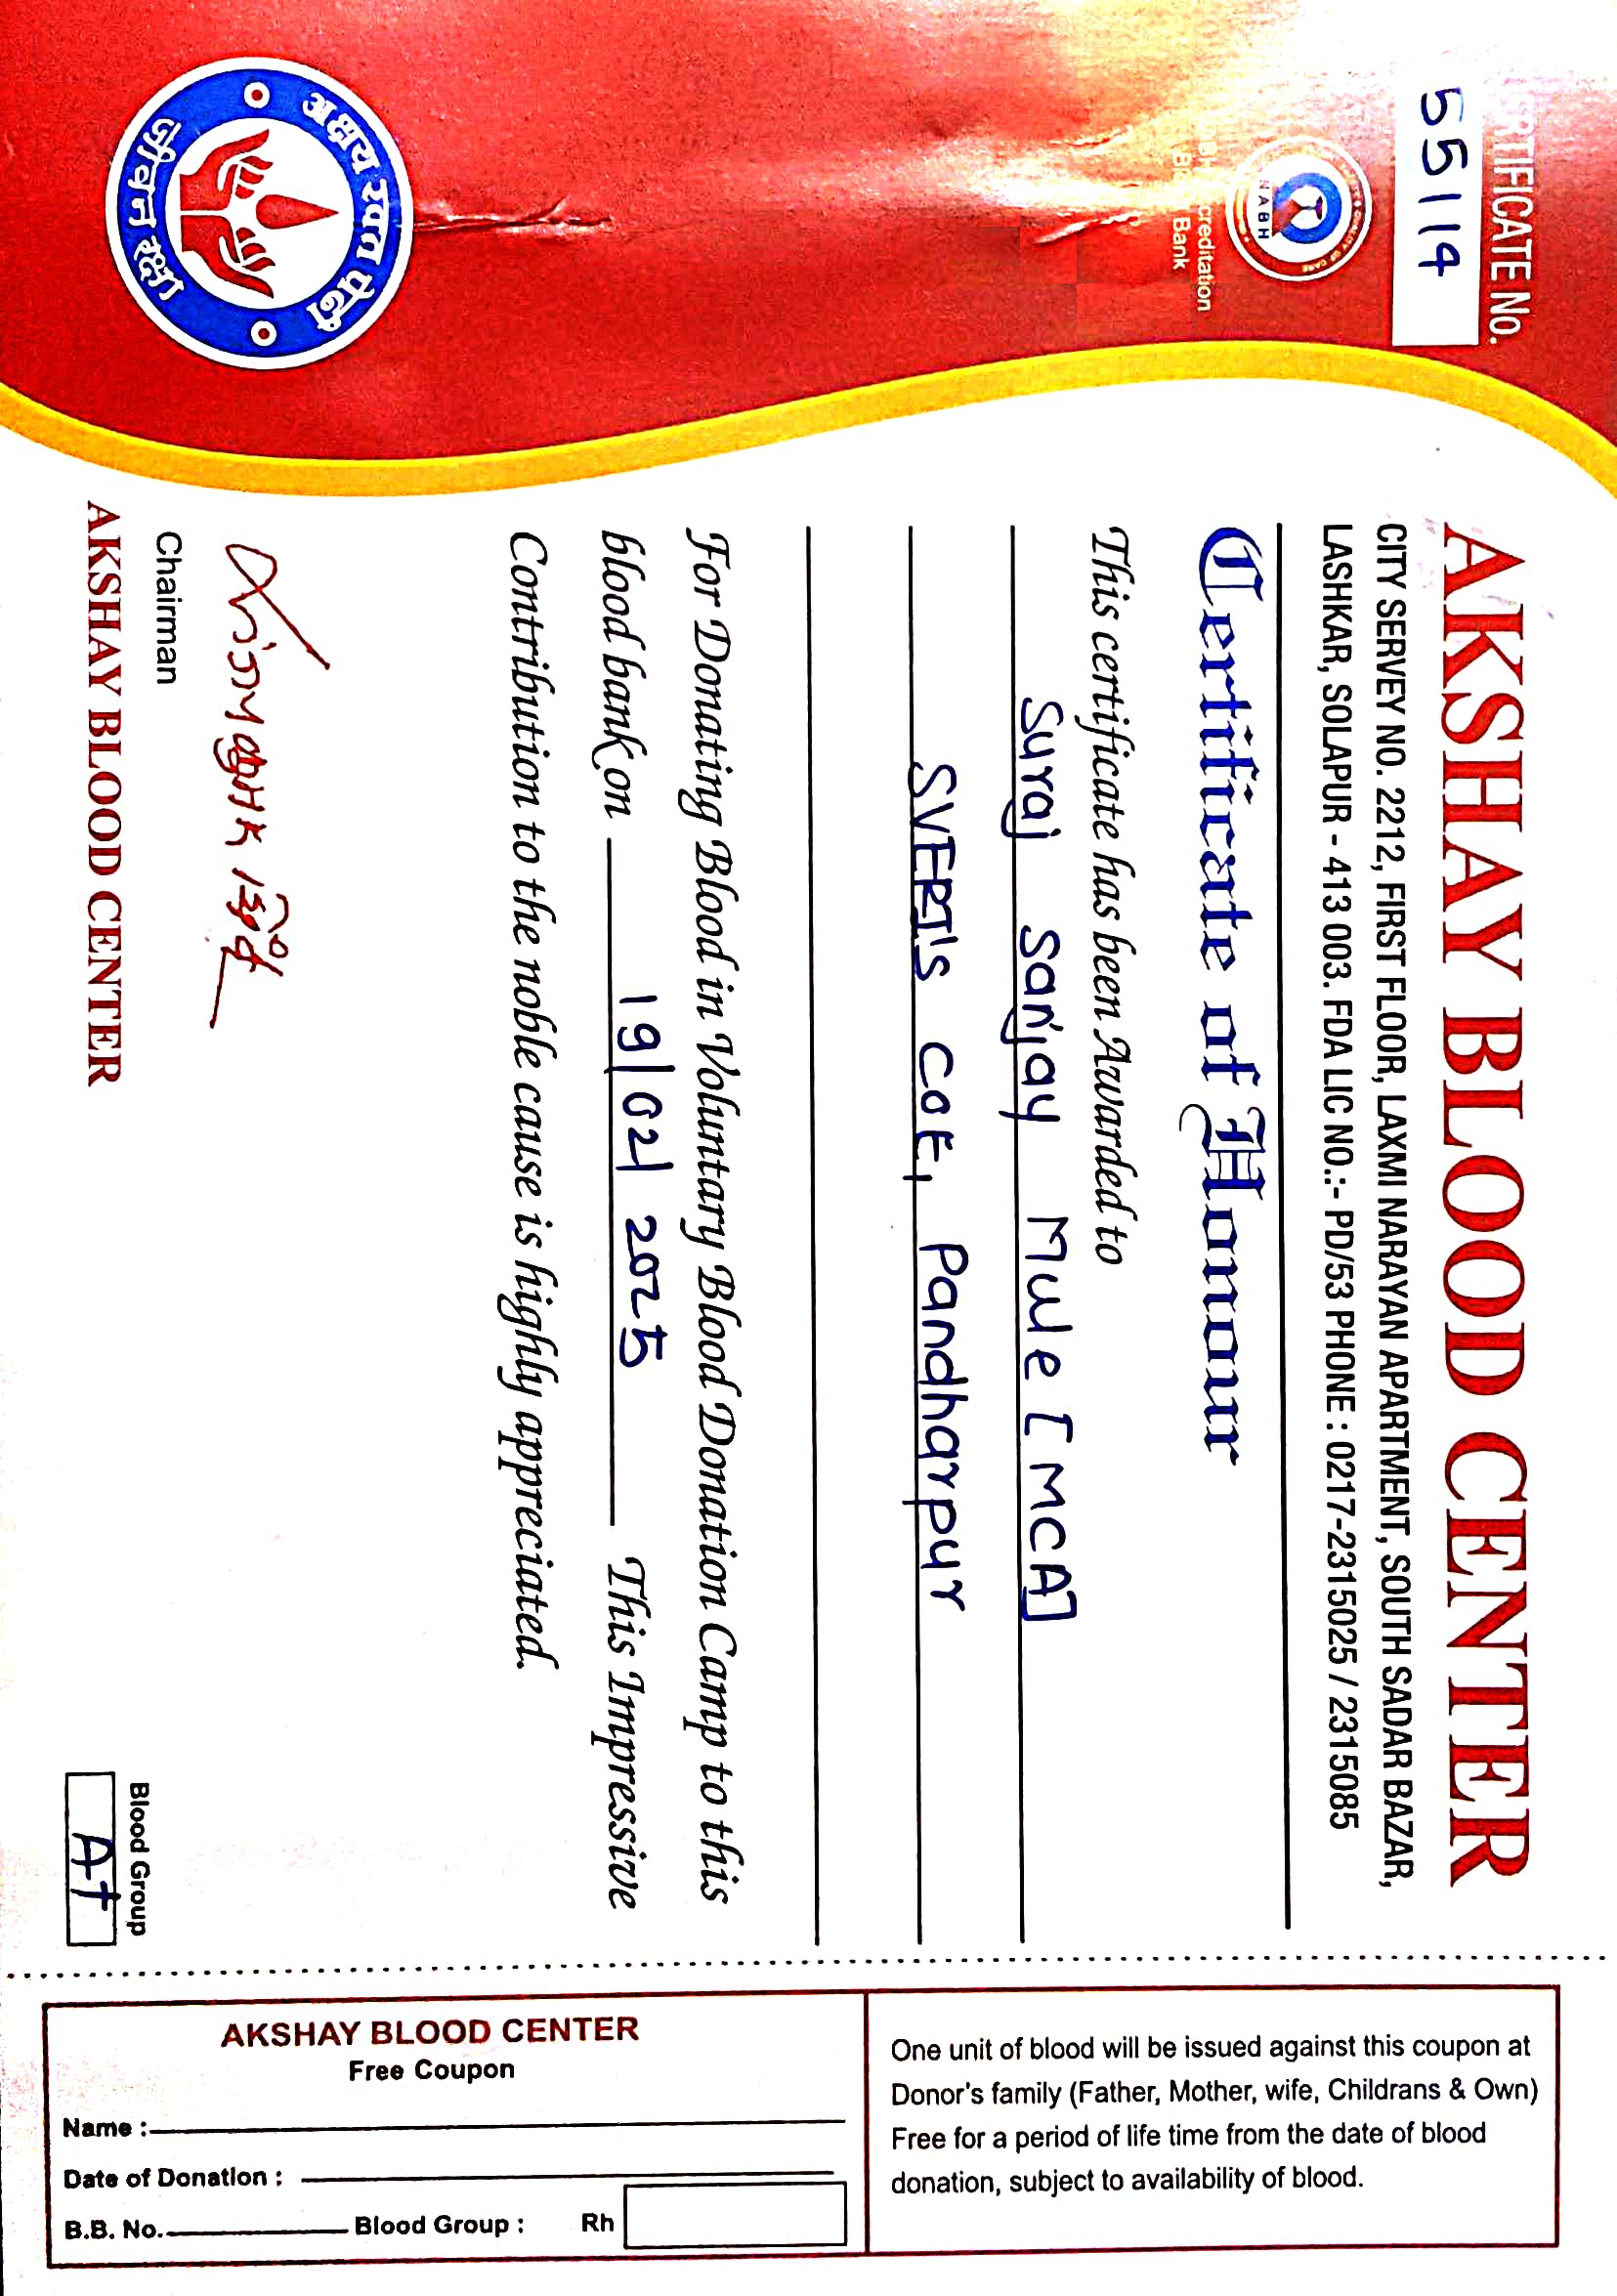 CERTIFICATE No.
55114
NABH
creditation
Bank
अक्षय रक्त पेढी
जीवन रक्षा
AKSHAY BLOOD CENTER
CITY SERVEY NO. 2212, FIRST FLOOR, LAXMI NARAYAN APARTMENT, SOUTH SADAR BAZAR,
LASHKAR, SOLAPUR - 413 003. FDA LIC NO.:- PD/53 PHONE : 0217-2315025 / 2315085
Certificate of Honour
This certificate has been Awarded to
Suraj Sanjay Mule [MCA]
SVERI's COE, Pandharpur
For Donating Blood in Voluntary Blood Donation Camp to this
blood bank on 19/02/2025 This Impressive
Contribution to the noble cause is highly appreciated.
Chairman
AKSHAY BLOOD CENTER
Blood Group
A+
AKSHAY BLOOD CENTER
Free Coupon
Name :
Date of Donation :
B.B. No. Blood Group : Rh
One unit of blood will be issued against this coupon at
Donor's family (Father, Mother, wife, Childrans & Own)
Free for a period of life time from the date of blood
donation, subject to availability of blood.